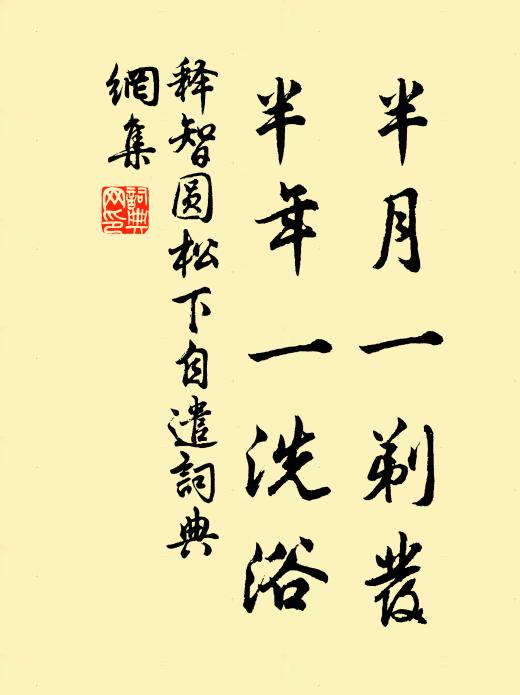 半月一剃發
半年一洗浴
释智圆松下自遣詞典
網集
詞典
网印